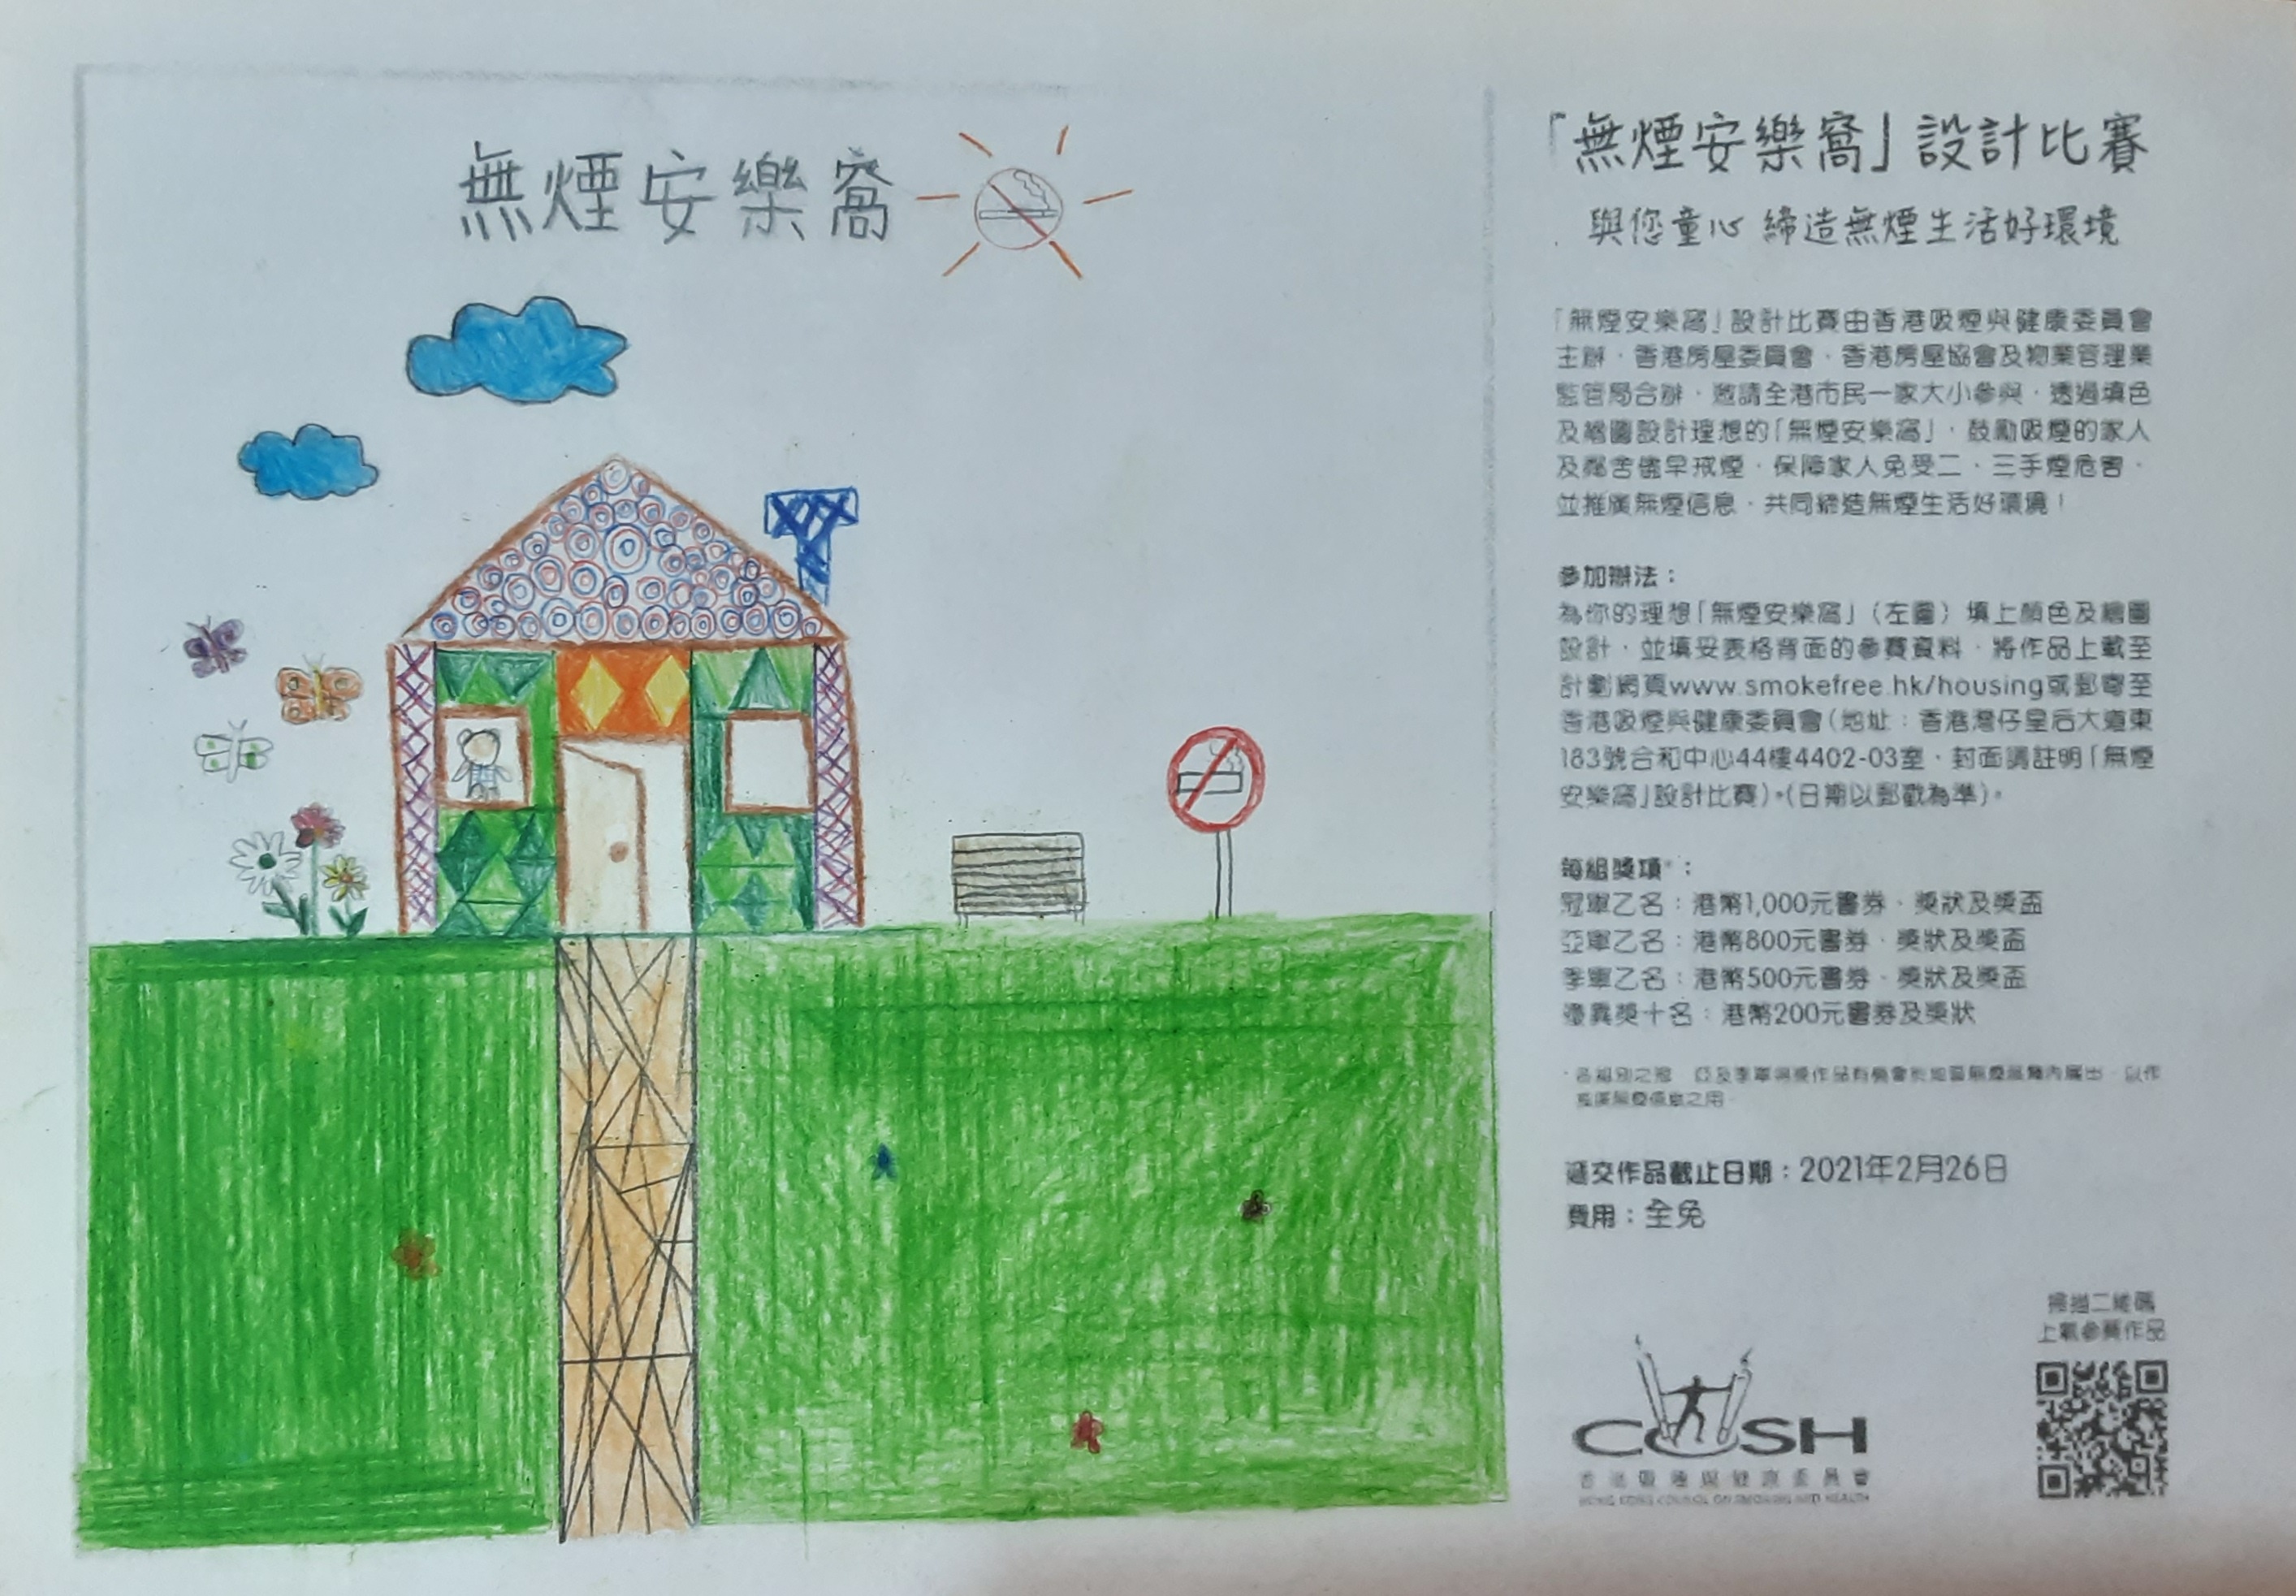 無煙安樂窩
「無煙安樂窩」設計比賽
與您童心 締造無煙生活好環境
「無煙安樂窩」設計比賽由香港吸煙與健康委員會
主辦，香港房屋委員會、香港房屋協會及物業管理業
監管局合辦，邀請全港市民一家大小參與，透過填色
及繪圖設計理想的「無煙安樂窩」，鼓勵吸煙的家人
及鄰舍儘早戒煙，保障家人免受二、三手煙危害，
並推廣無煙信息，共同締造無煙生活好環境！
參加辦法：
為你的理想「無煙安樂窩」（左圖）填上顏色及繪圖
設計，並填妥表格背面的參賽資料，將作品上載至
計劃網頁www.smokefree.hk/housing或郵寄至
香港吸煙與健康委員會（地址：香港灣仔皇后大道東
183號合和中心44樓4402-03室，封面請註明「無煙
安樂窩」設計比賽）。（日期以郵戳為準）。
每組獎項*：
冠軍乙名：港幣1,000元書券、獎狀及獎盃
亞軍乙名：港幣800元書券、獎狀及獎盃
季軍乙名：港幣500元書券、獎狀及獎盃
優異獎十名：港幣200元書券及獎狀
遞交作品截止日期：2021年2月26日
費用：全免
掃描二維碼
上載參賽作品
COSH
香港吸煙與健康委員會
HONG KONG COUNCIL ON SMOKING AND HEALTH